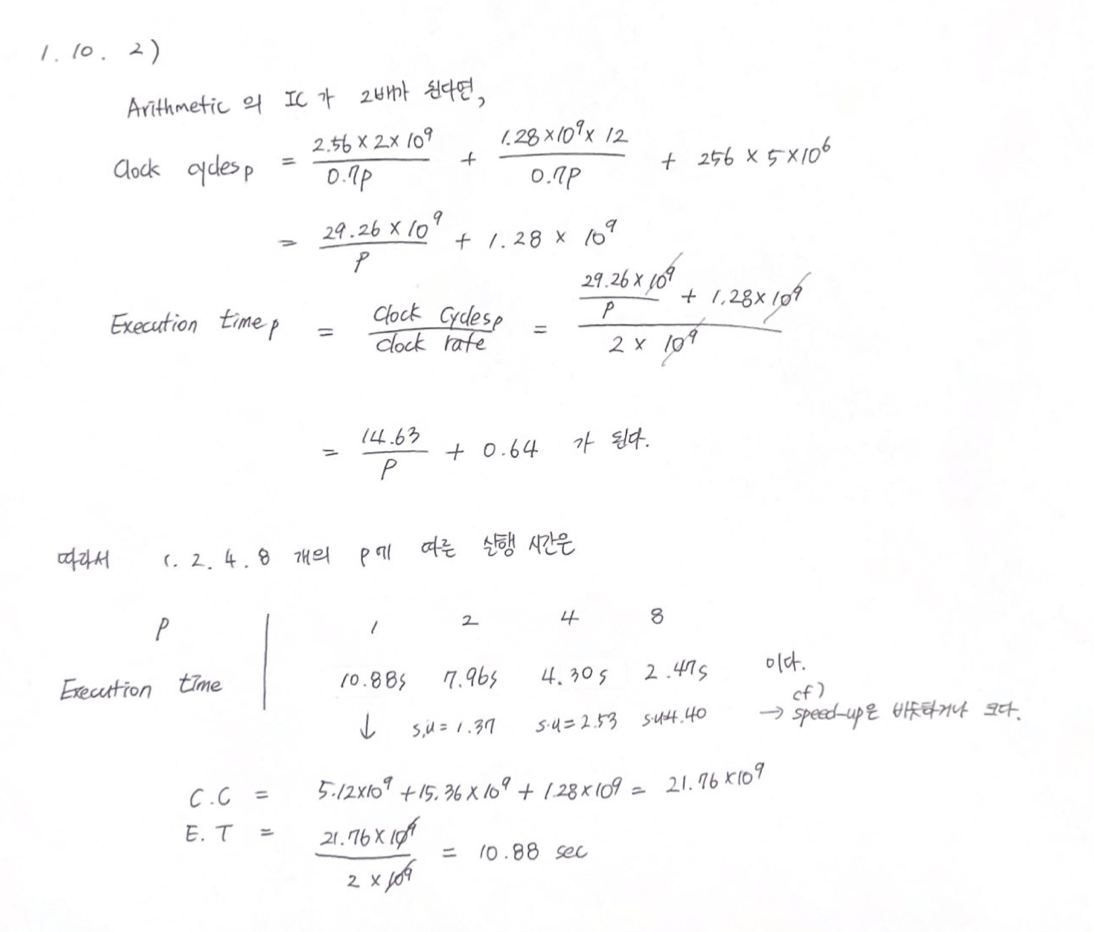 1.10.2)
Arithmetic 의 IC가 2배가 된다면,
Clock cycles_p = (2.56 × 2 × 10^9)/(0.7p) + (1.28 × 10^9 × 12)/(0.7p) + 256 × 5 × 10^6
= (29.26 × 10^9)/p + 1.28 × 10^9
Execution time_p = Clock Cycles_p / Clock rate = ((29.26 × 10^9)/p + 1.28 × 10^9) / (2 × 10^9)
= 14.63/p + 0.64 가 된다.
따라서 1. 2. 4. 8 개의 p에 따른 실행 시간은
P | 1 2 4 8
Execution time | 10.88s 7.96s 4.30s 2.47s 이다.
cf)
↓ s.u = 1.37 s.u = 2.53 s.u 4.40 → speed-up은 비슷하거나 크다.
C.C = 5.12×10^9 + 15.36 × 10^9 + 1.28 × 10^9 = 21.76 × 10^9
E.T = (21.76 × 10^9)/(2 × 10^9) = 10.88 sec